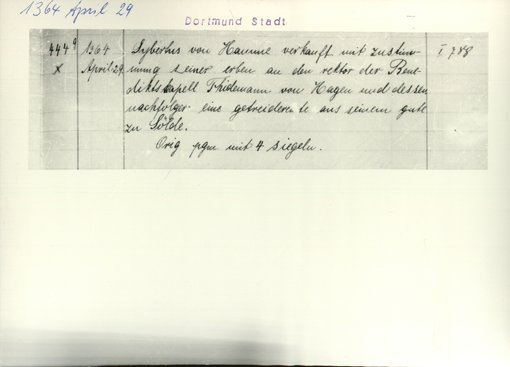 1364 April 29
Dortmund Stadt
444 9 1364 Sybertus von Hamme verkauft mit zustim- I, 788
x April 29. mung seiner erben an den rektor der Bene-
diktskapell Thidemann von Hagen und dessen
nachfolger eine getreiderente aus seinem gute
zu Sölde.
Orig pgm mit 4 siegeln.